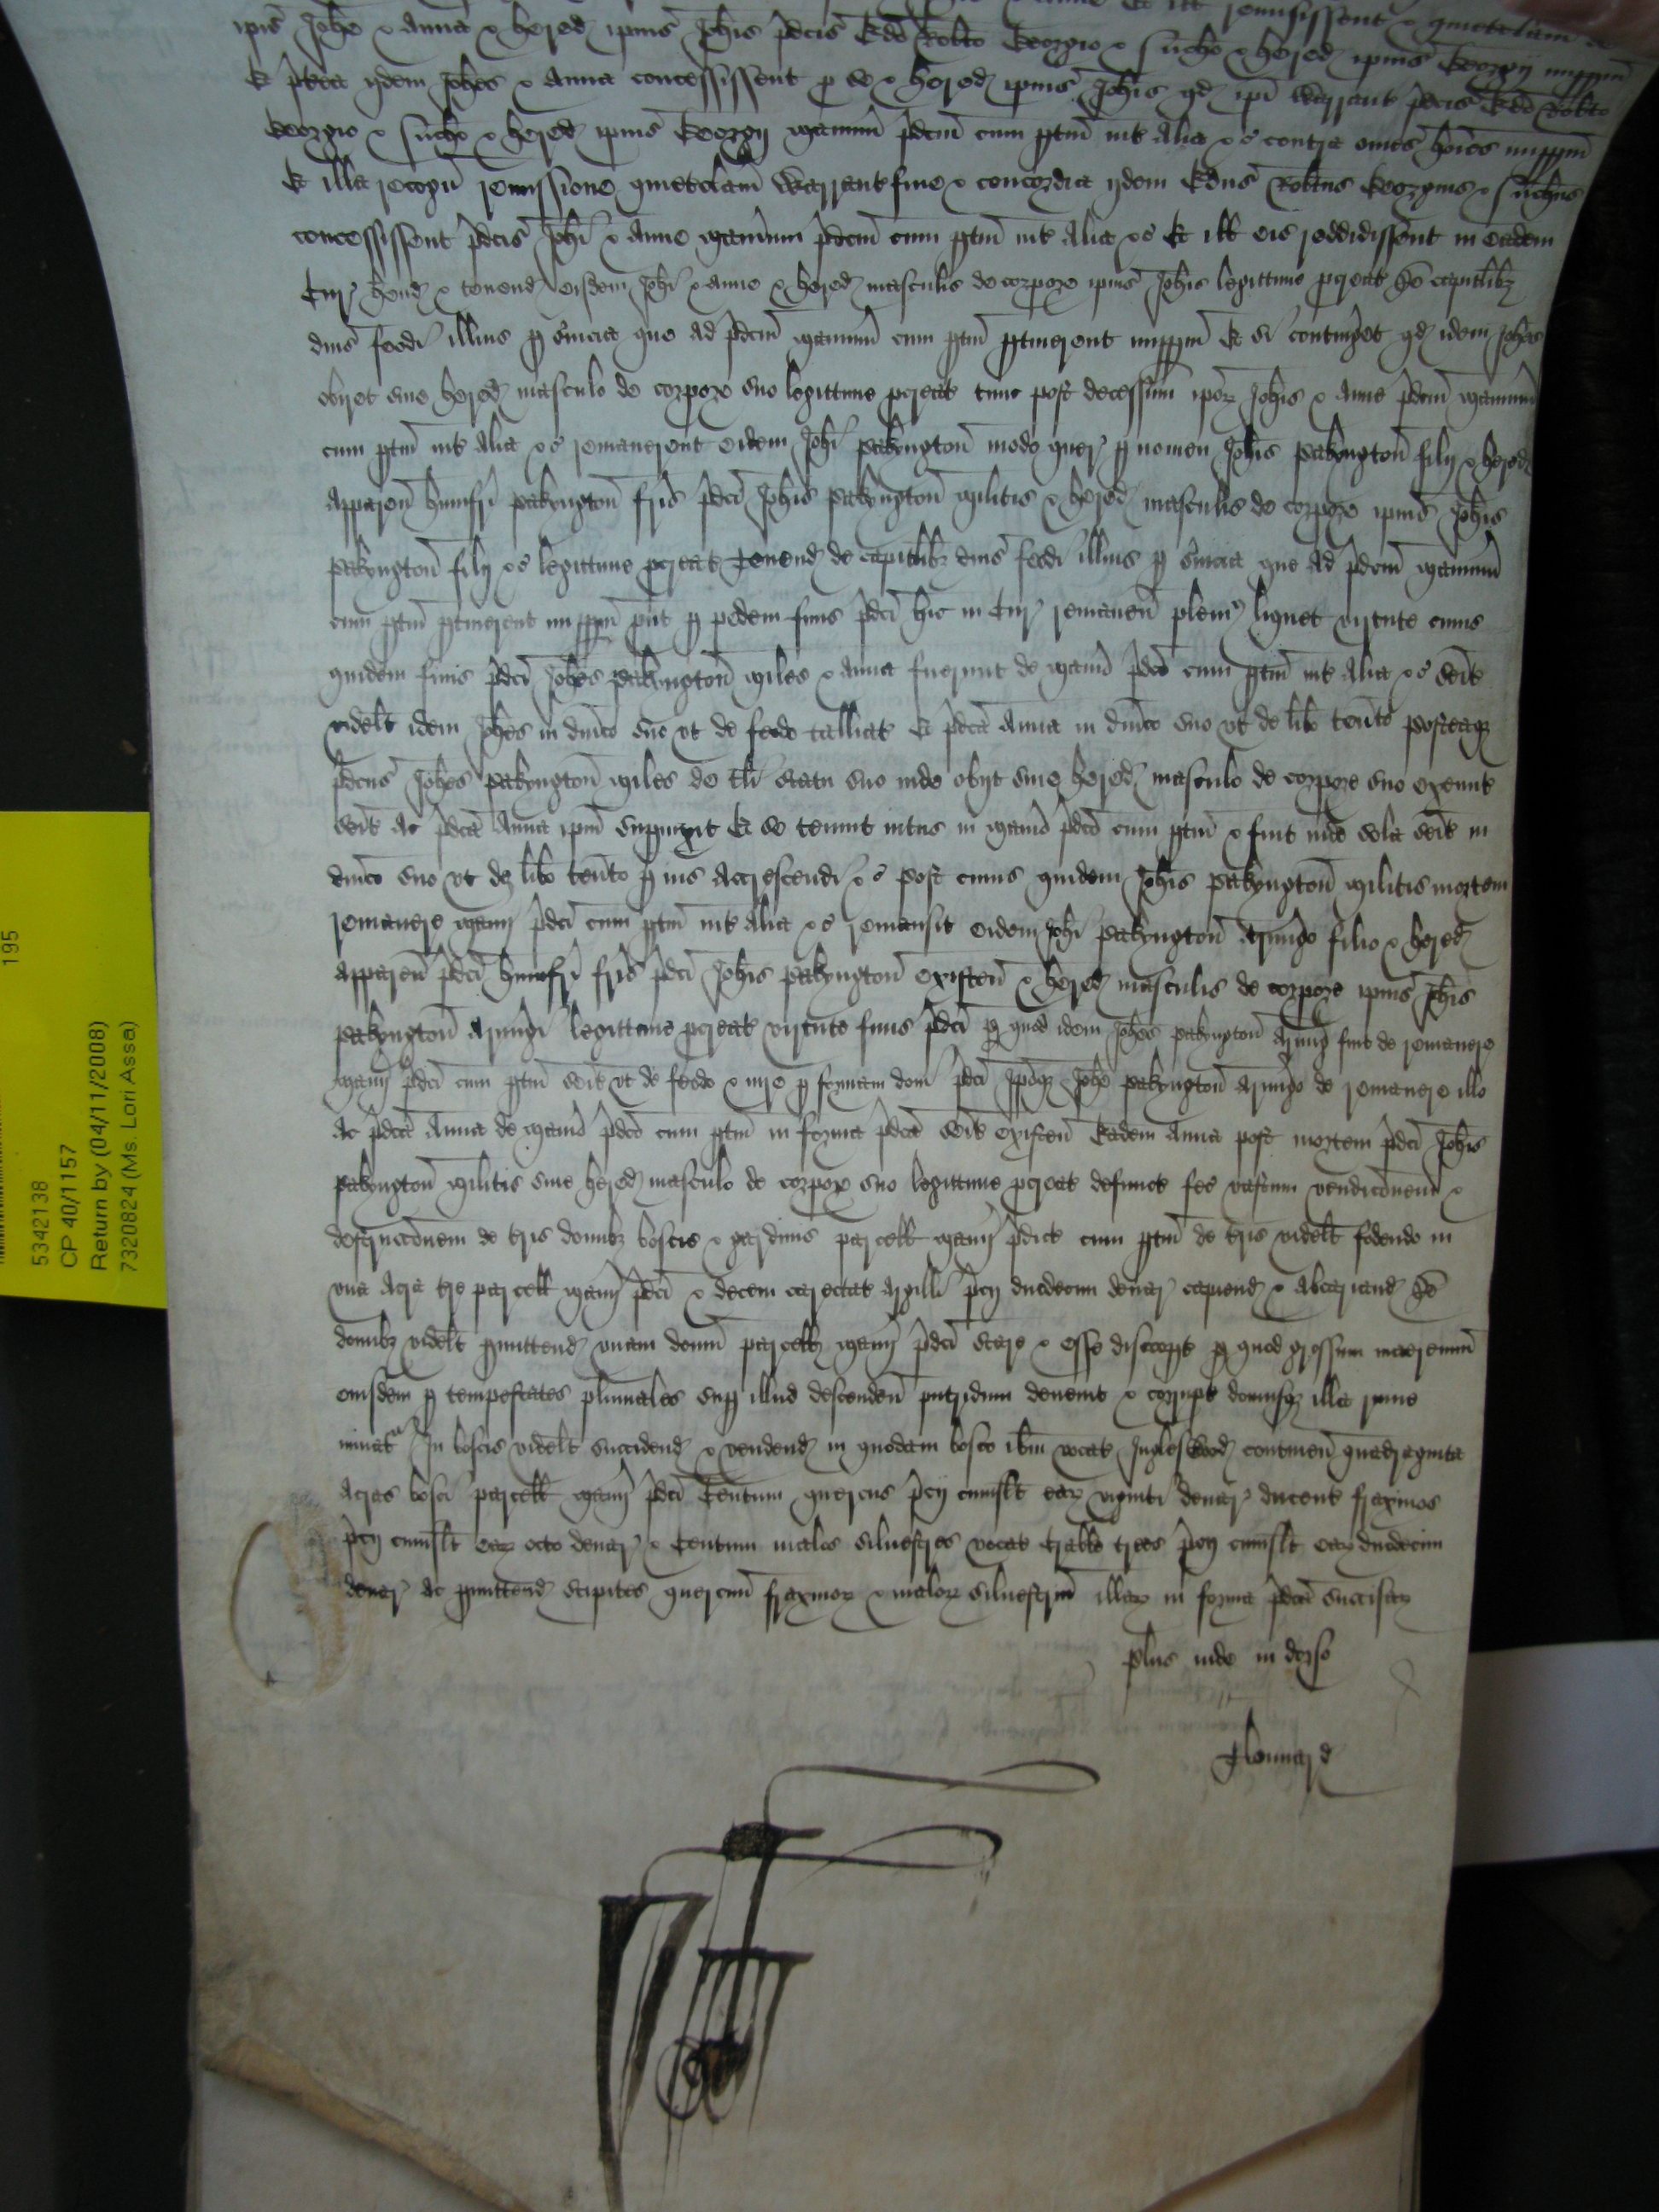 ip̄is Joh̄e & Anna & hered ip̄ius Joh̄is p̄dcis Edō Rob̄to Georgio & hered ip̄ius Georgij imp̄p̄m
Et p̄tea ijdem Joh̄es & Anna concessissent p se & hered ip̄ius Joh̄is qd ip̄i Warrant p̄dcis Edō Rob̄to
Georgio & hered ip̄ius Georgij Man̄iū p̄dcm̄ cum p̄tin̄ int Alia &c contra om̄es ho̅i̅es imp̄p̄m
Et illa recogn̄ remissione quietclam̄ Warrant fine & concordia ijdem Edūs Rob̄tus Georgius &
concessissent p̄dcis Joh̄i & Anne Man̄ium p̄dcm̄ cum p̄tin̄ int Alia &c Et ill eis reddidissent in eadem
Cur hend & tenend eisdem Joh̄i & Anne & hered masculis de corpore ip̄ius Joh̄is legittime p̄creat de capitalib̄z
dn̄is feodi illius p s̄uicia que ad p̄dcm̄ Man̄iū cum p̄tin̄ p̄tinerent imp̄p̄m Et si continḡet qd idem Joh̄es
obiret sine hered masculo de corpore suo legittime p̄creat tunc post decessum ip̄oꝝ Joh̄is & Anne p̄dcm̄ Man̄iū
cum p̄tin̄ int Alia &c remanerent eidem Joh̄i Pakyngton̄ modo quer p nomen Joh̄is Pakyngton̄ filij & hered
Apparen̄ Humfri Pakyngton̄ fris p̄dci Joh̄is Pakyngton̄ Militis & hered masculis de corpore ip̄ius Joh̄is
Pakyngton̄ filij &c legittime p̄creat Tenend de capitalib̄z dn̄is feodi illius p s̄uicia que ad p̄dcm̄ Man̄iū
cum p̄tin̄ p̄tinerent imp̄p̄m put p pedem finis p̄dci hic in Cur remanen̄ plenius liquet virtute cuius
quidem finis p̄dci Joh̄es Pakyngton̄ Miles & Anna fuerunt de Man̄io p̄dco cum p̄tin̄ int Alia &c seit
videlt idem Joh̄es in dn̄ico suo vt de feodo talliat Et p̄dca Anna in dn̄ico suo vt de lib̄o ten̄to posteaqz
p̄dcus Joh̄es Pakyngton̄ Miles de tli statu suo inde obijt sine hered masculo de corpore suo exeunt
seit Ac p̄dca Anna ip̄m supuixit Et se tenuit intus in Man̄io p̄dco cum p̄tin̄ & fuit inde sola seit in
dn̄ico suo vt de lib̄o ten̄to p ius Accrescendi &c Post cuius quidem Joh̄is Pakyngton̄ Militis mortem
remanere Man̄ij p̄dci cum p̄tin̄ int Alia &c remansit eidem Joh̄i Pakyngton̄ Armiḡo filio & hered
Apparen̄ p̄dci Humfri fris p̄dci Joh̄is Pakyngton̄ existen̄ & hered masculis de corpore ip̄ius Joh̄is
Pakyngton̄ Armiḡi legittime p̄creat virtute finis p̄dci p quod idem Joh̄es Pakyngton̄ Armiḡ fuit de remanere
Man̄ij p̄dci cum p̄tin̄ seit vt de feodo & iure p formam doni p̄dci Ip̄oqz Joh̄e Pakyngton̄ Armiḡo de remanere illo
Ac p̄dca Anna de Man̄io p̄dco cum p̄tin̄ in forma p̄dca seit existen̄ Eadem Anna post mortem p̄dci Joh̄is
Pakyngton̄ Militis sine hered masculo de corpore suo legittime p̄creat defunct fec vastum vendico̅e̅m &
destrucco̅e̅m de t̄ris domib̄z boscis & gardinis parcell Man̄ij p̄dict cum p̄tin̄ de t̄ris videlt fodendo in
vna Acra t̄re parcell Man̄ij p̄dci & decem carectat Argilli p̄cij duodecim denar capiend & abcariand de
domib̄z videlt p̄mittend vnam domū parcell Man̄ij p̄dci stare & esse discoopt p quod grossum maeremiū
eiusdem p tempestates pluuiales sup illud descenden̄ putridum deuenit & corrupt domusqz illa ruine
minat In boscis videlt succidend & vendend in quodam bosco ib̄m vocat Ingleswood continen̄ quadraginta
Acras bosci parcell Man̄ij p̄dci Centum quercus p̄cij cuiuslt eaꝝ viginti denar ducent fraxinos
p̄cij cuiuslt eaꝝ octo denar & Centum malos siluestres vocat Crabbe trees p̄cij cuiuslt eaꝝ duodecim
denar Ac p̄mittend stipites quercuū fraxinoꝝ & maloꝝ siluestriū illaꝝ in forma p̄dca succisaꝝ
plus inde in dorso
195
5342138
CP 40/1157
Return by (04/11/2008)
7320824 (Ms. Lori Assa)